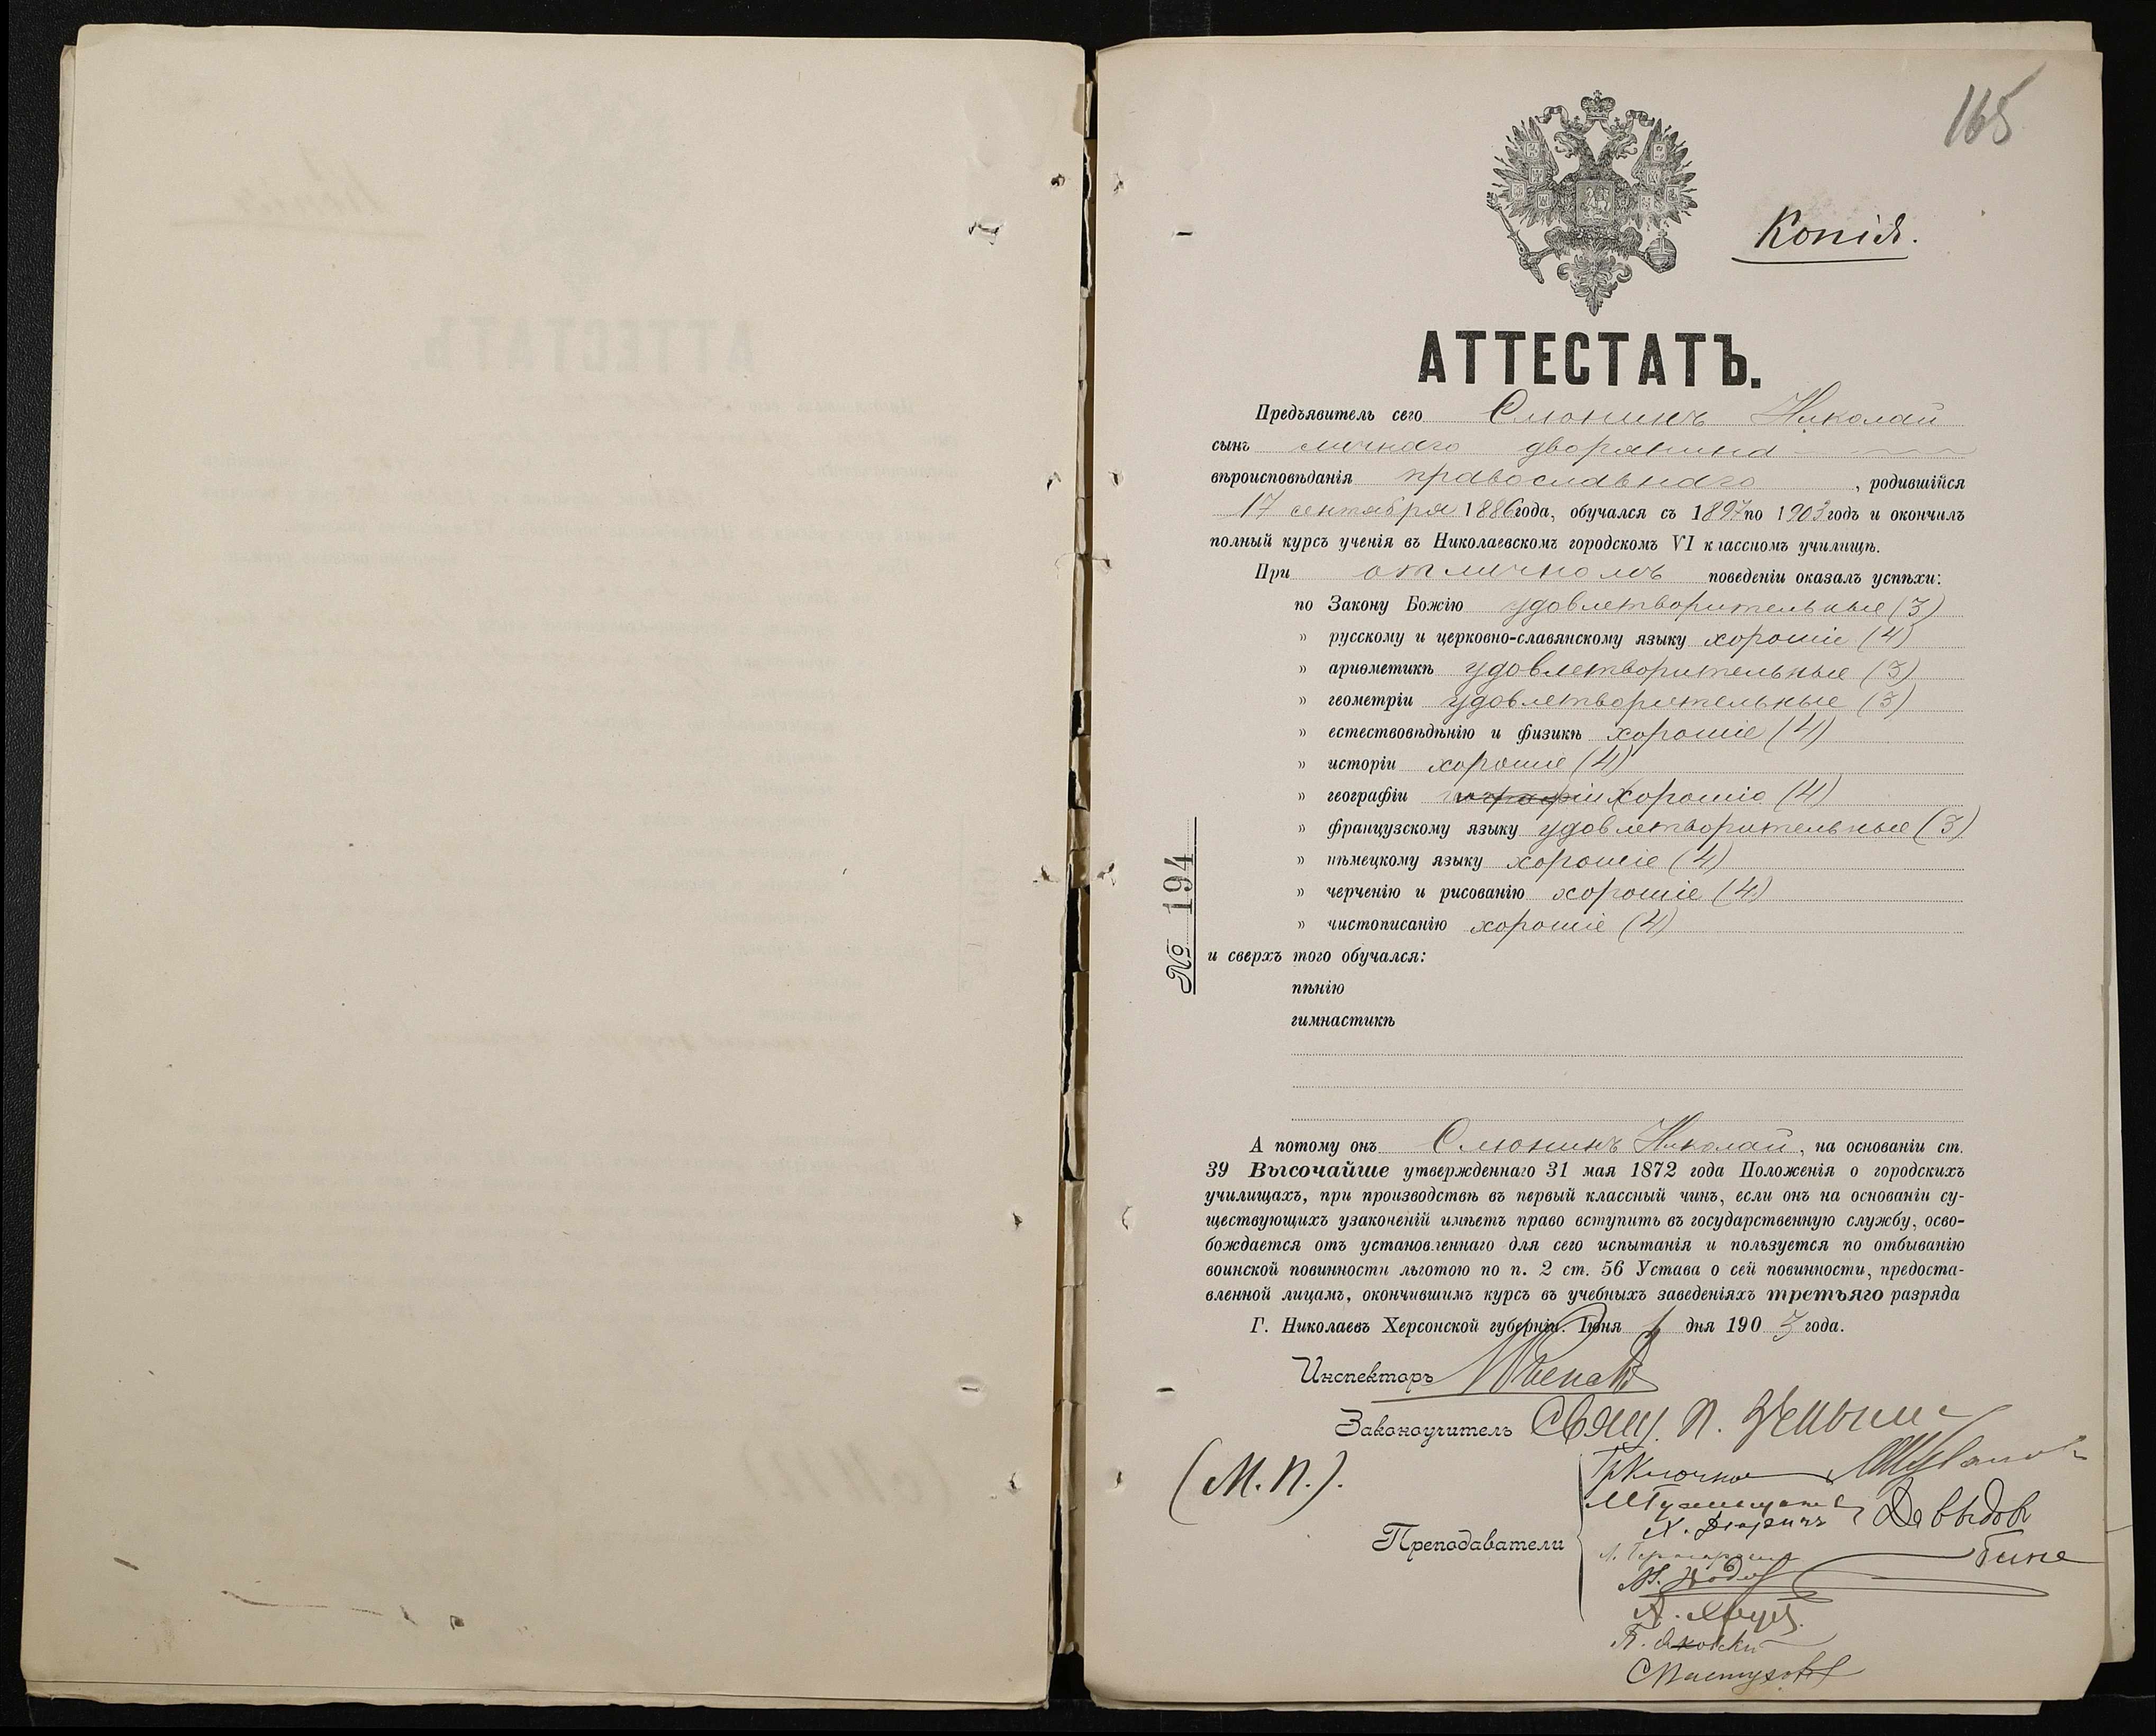 165
Копія.
АТТЕСТАТЪ.
Предъявитель сего Слюнинъ Николай
сынъ личнаго дворянина
вѣроисповѣданія православнаго, родившійся
17 сентября 1886 года, обучался съ 1897 по 1903 годъ и окончилъ
полный курсъ ученія въ Николаевскомъ городскомъ VI классномъ училищѣ.
При отличномъ поведеніи оказалъ успѣхи:
по Закону Божію удовлетворительные (3)
» русскому и церковно-славянскому языку хорошіе (4)
» ариѳметикѣ удовлетворительные (3)
» геометріи удовлетворительные (3)
» естествовѣдѣнію и физикѣ хорошіе (4)
» исторіи хорошіе (4)
» географіи хорошіе (4)
» французскому языку удовлетворительные (3)
» нѣмецкому языку хорошіе (4)
» черченію и рисованію хорошіе (4)
» чистописанію хорошіе (4)
№ 194
и сверхъ того обучался:
пѣнію
гимнастикѣ
А потому онъ Слюнинъ Николай, на основаніи ст.
39 Высочайше утвержденнаго 31 мая 1872 года Положенія о городскихъ
училищахъ, при производствѣ въ первый классный чинъ, если онъ на основаніи су-
ществующихъ узаконеній имѣетъ право вступить въ государственную службу, осво-
бождается отъ установленнаго для сего испытанія и пользуется по отбыванію
воинской повинности льготою по п. 2 ст. 56 Устава о сей повинности, предоста-
вленной лицамъ, окончившимъ курсъ въ учебныхъ заведеніяхъ третьяго разряда
Г. Николаевъ Херсонской губерніи. Іюня дня 1903 года.
Инспекторъ
Законоучитель Свящ. П.
(М.П.).
Преподаватели
Давыдов
Гине
С Пастухов